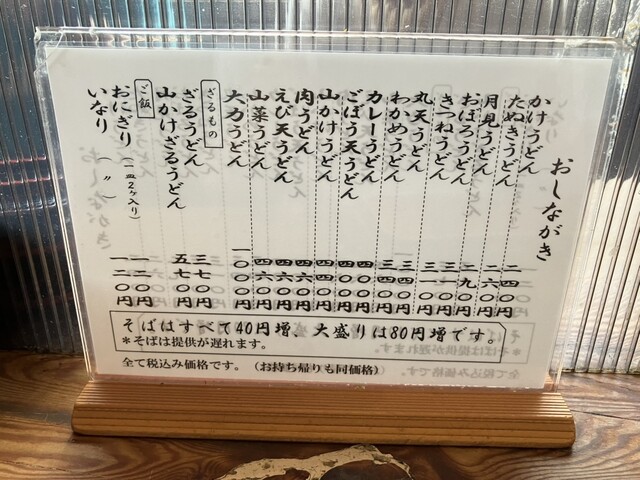 おしながき
かけうどん 二四〇円
たぬきうどん 二六〇円
月見うどん 二九〇円
おぼろうどん 三一〇円
きつねうどん 三一〇円
丸天うどん 三四〇円
わかめうどん 三四〇円
カレーうどん 四〇〇円
ごぼう天うどん 四〇〇円
山かけうどん 四四〇円
肉うどん 四六〇円
えび天うどん 四六〇円
山菜うどん 四六〇円
大力うどん 一〇〇〇円
ざるもの
ざるうどん 三七〇円
山かけざるうどん 五七〇円
ご飯
おにぎり (一皿2ヶ入り) 一二〇円
いなり ( 〃 ) 一二〇円
そばはすべて40円増、大盛りは80円増です。
*そばは提供が遅れます。
全て税込み価格です。(お持ち帰りも同価格)